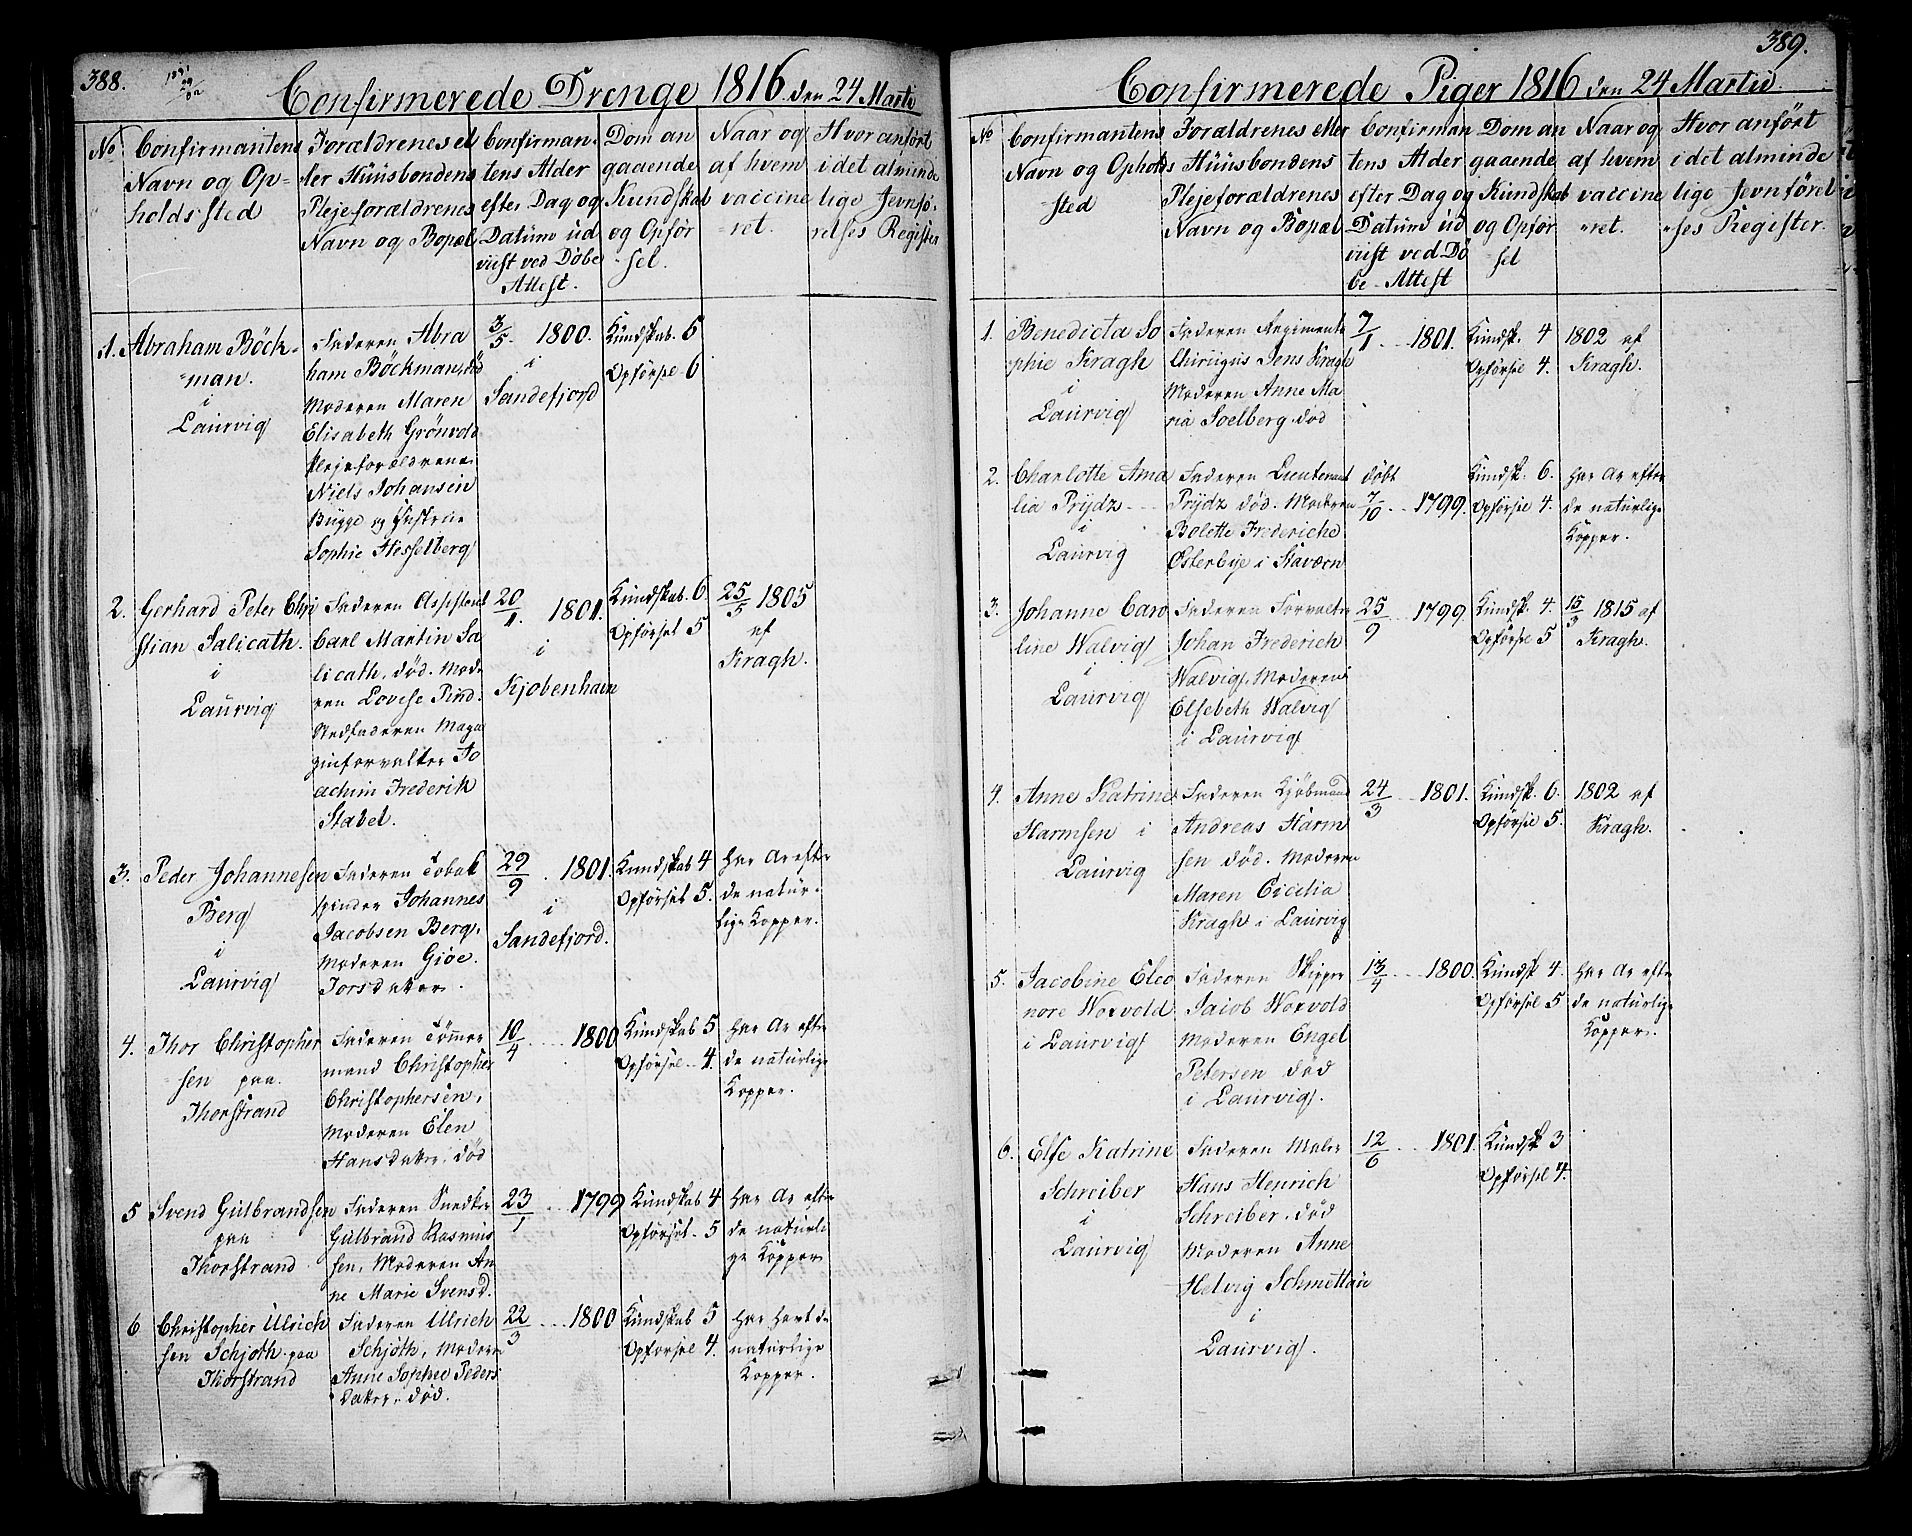 388.
Confirmerede Drenge 1816 den 24 Martii
No
Confirmantens
Navn og Op-
holdssted
Forældrenes el
ler Huusbondens
Plejeforældrenes
Navn og Bopæl
Confirman-
tens Alder
efter Dag og
Datum ud
viist ved Døbe
Attest.
Dom an
gaaende
Kundskab
og Opfør
sel.
Naar og
af hvem
vaccine
ret.
Hvor anført
i det alminde
lige Jevnfø-
relses Register
1. Abraham Böck-
man.
i
Laurvig
Faderen Abra
ham Böckman, død
Moderen Maren
Elisabeth Grönvold
Plejeforældrene
Niels Johansen
Bugge og Hustrue
Sophie Hesselberg
3/5 1800.
i
Sandefjord
Kundskab. 5
Opførsel 6
2. Gerhard Peter Chri
stian Salicath.
i
Laurvig
Faderen Assistent
Carl Martin Sa
licath, død. Mode
ren Lovise Pind.
Stedfaderen Maga
zinforvalter Jo
achim Frederik
Stabel.
20/1. 1801.
i
Kjøbenhavn
Kundskab. 6.
Opførsel 5
25/5 1805
af
Kragh.
3. Peder Johannesen
Berg
i
Laurvig
Faderen Tobak
spinder Johannes
Jacobsen Berg,
Moderen Gjøe
Torsdatter.
29/9. 1801.
i
Sandefjord.
Kundskab 4
Opførsel 5.
har de
natur-
lige Kopper.
4. Thor Christopher
sen paa
Thorstrand
Faderen Tømmer
mand Christopher
Christophersen,
Moderen Elen
Hansdatter, død
10/4 1800
Kundskab 5
Opførsel 4.
har Ar efte
de naturlige
Kopper.
5 Svend Gulbrandsen
paa
Thorstrand
Faderen Snedker
Gulbrand Rasmus
sen, Moderen An
ne Marie Svensd.
23/1 1799
Kundskab 4
Opførsel 5
har Ar efte
de naturli
ge Kopper
6 Christopher Ulrich
sen Schjøth paa
Thorstrand
Faderen Ulrich
Schjøth, Moderen
Anne Sophie Peders
datter, død.
22/3 1800
Kundskab 5
Opførsel 4.
har havt de
naturlige
Kopper.
389.
Confirmerede Piger 1816 den 24 Martii.
No
Confirmantens
Navn og Opholds
sted
Forældrenes eller
Huusbondens
Plejeforældrenes
Navn og Bopæl
Confirman
tens Alder
efter Dag og
Datum ud
viist ved Dö
be-Attest
Dom an
gaaende
Kundskab
og Opför
sel
Naar og
af hvem
vaccine
ret.
Hvor anfört
i det alminde
lige Jevnførel
ses Register.
1. Benedicta So
phie Kragh
i
Laurvig
Faderen Regiments
Chirurgus Jens Kragh
Moderen Anne Ma
ria Soelberg, død
7/1 1801.
Kundsk. 4
Opførsel 4.
1802 af
Kragh.
2. Charlotte Ama
lia Prydz
i
Laurvig
Faderen Lieutenant
Prydz død. Moderen
Bolette Frederiche
Østerbye i Stavern
døbt
7/10 1799.
Kundsk. 6.
Opførsel 4.
har Ar efter
de naturlige
Kopper.
3. Johanne Caro
line Walvig
i
Laurvig
Faderen Forvalter
Johan Frederich
Walvig, Moderen
Elsebeth Walvig
i Laurvig
25/9 1799
Kundsk. 4.
Opførsel 5
15/3 1815 af
Kragh.
4. Anne Katrine
Harmsen i
Laurvig
Faderen Kjøbmand
Andreas Harm
sen død. Moderen
Maren Cicilia
Kragh i Laurvig
24/3 1801.
Kundsk. 6.
Opførsel 5.
1802 af
Kragh.
5. Jacobine Eleo
nore Worvold
i Laurvig
Faderen Skipper
Jacob Worvold
Moderen Engel
Petersen død
i Laurvig.
13/4 1800.
Kundsk 4.
Opførsel 5
har Ar efte
de naturlige
Kopper.
6. Else Katrine
Schreiber
i
Laurvig
Faderen Maler
Hans Henrich
Schreiber, død
Moderen Anne
Helvig Schmettau
i
Laurvig.
12/6 1801.
Kundsk 3
Opførsel 4.